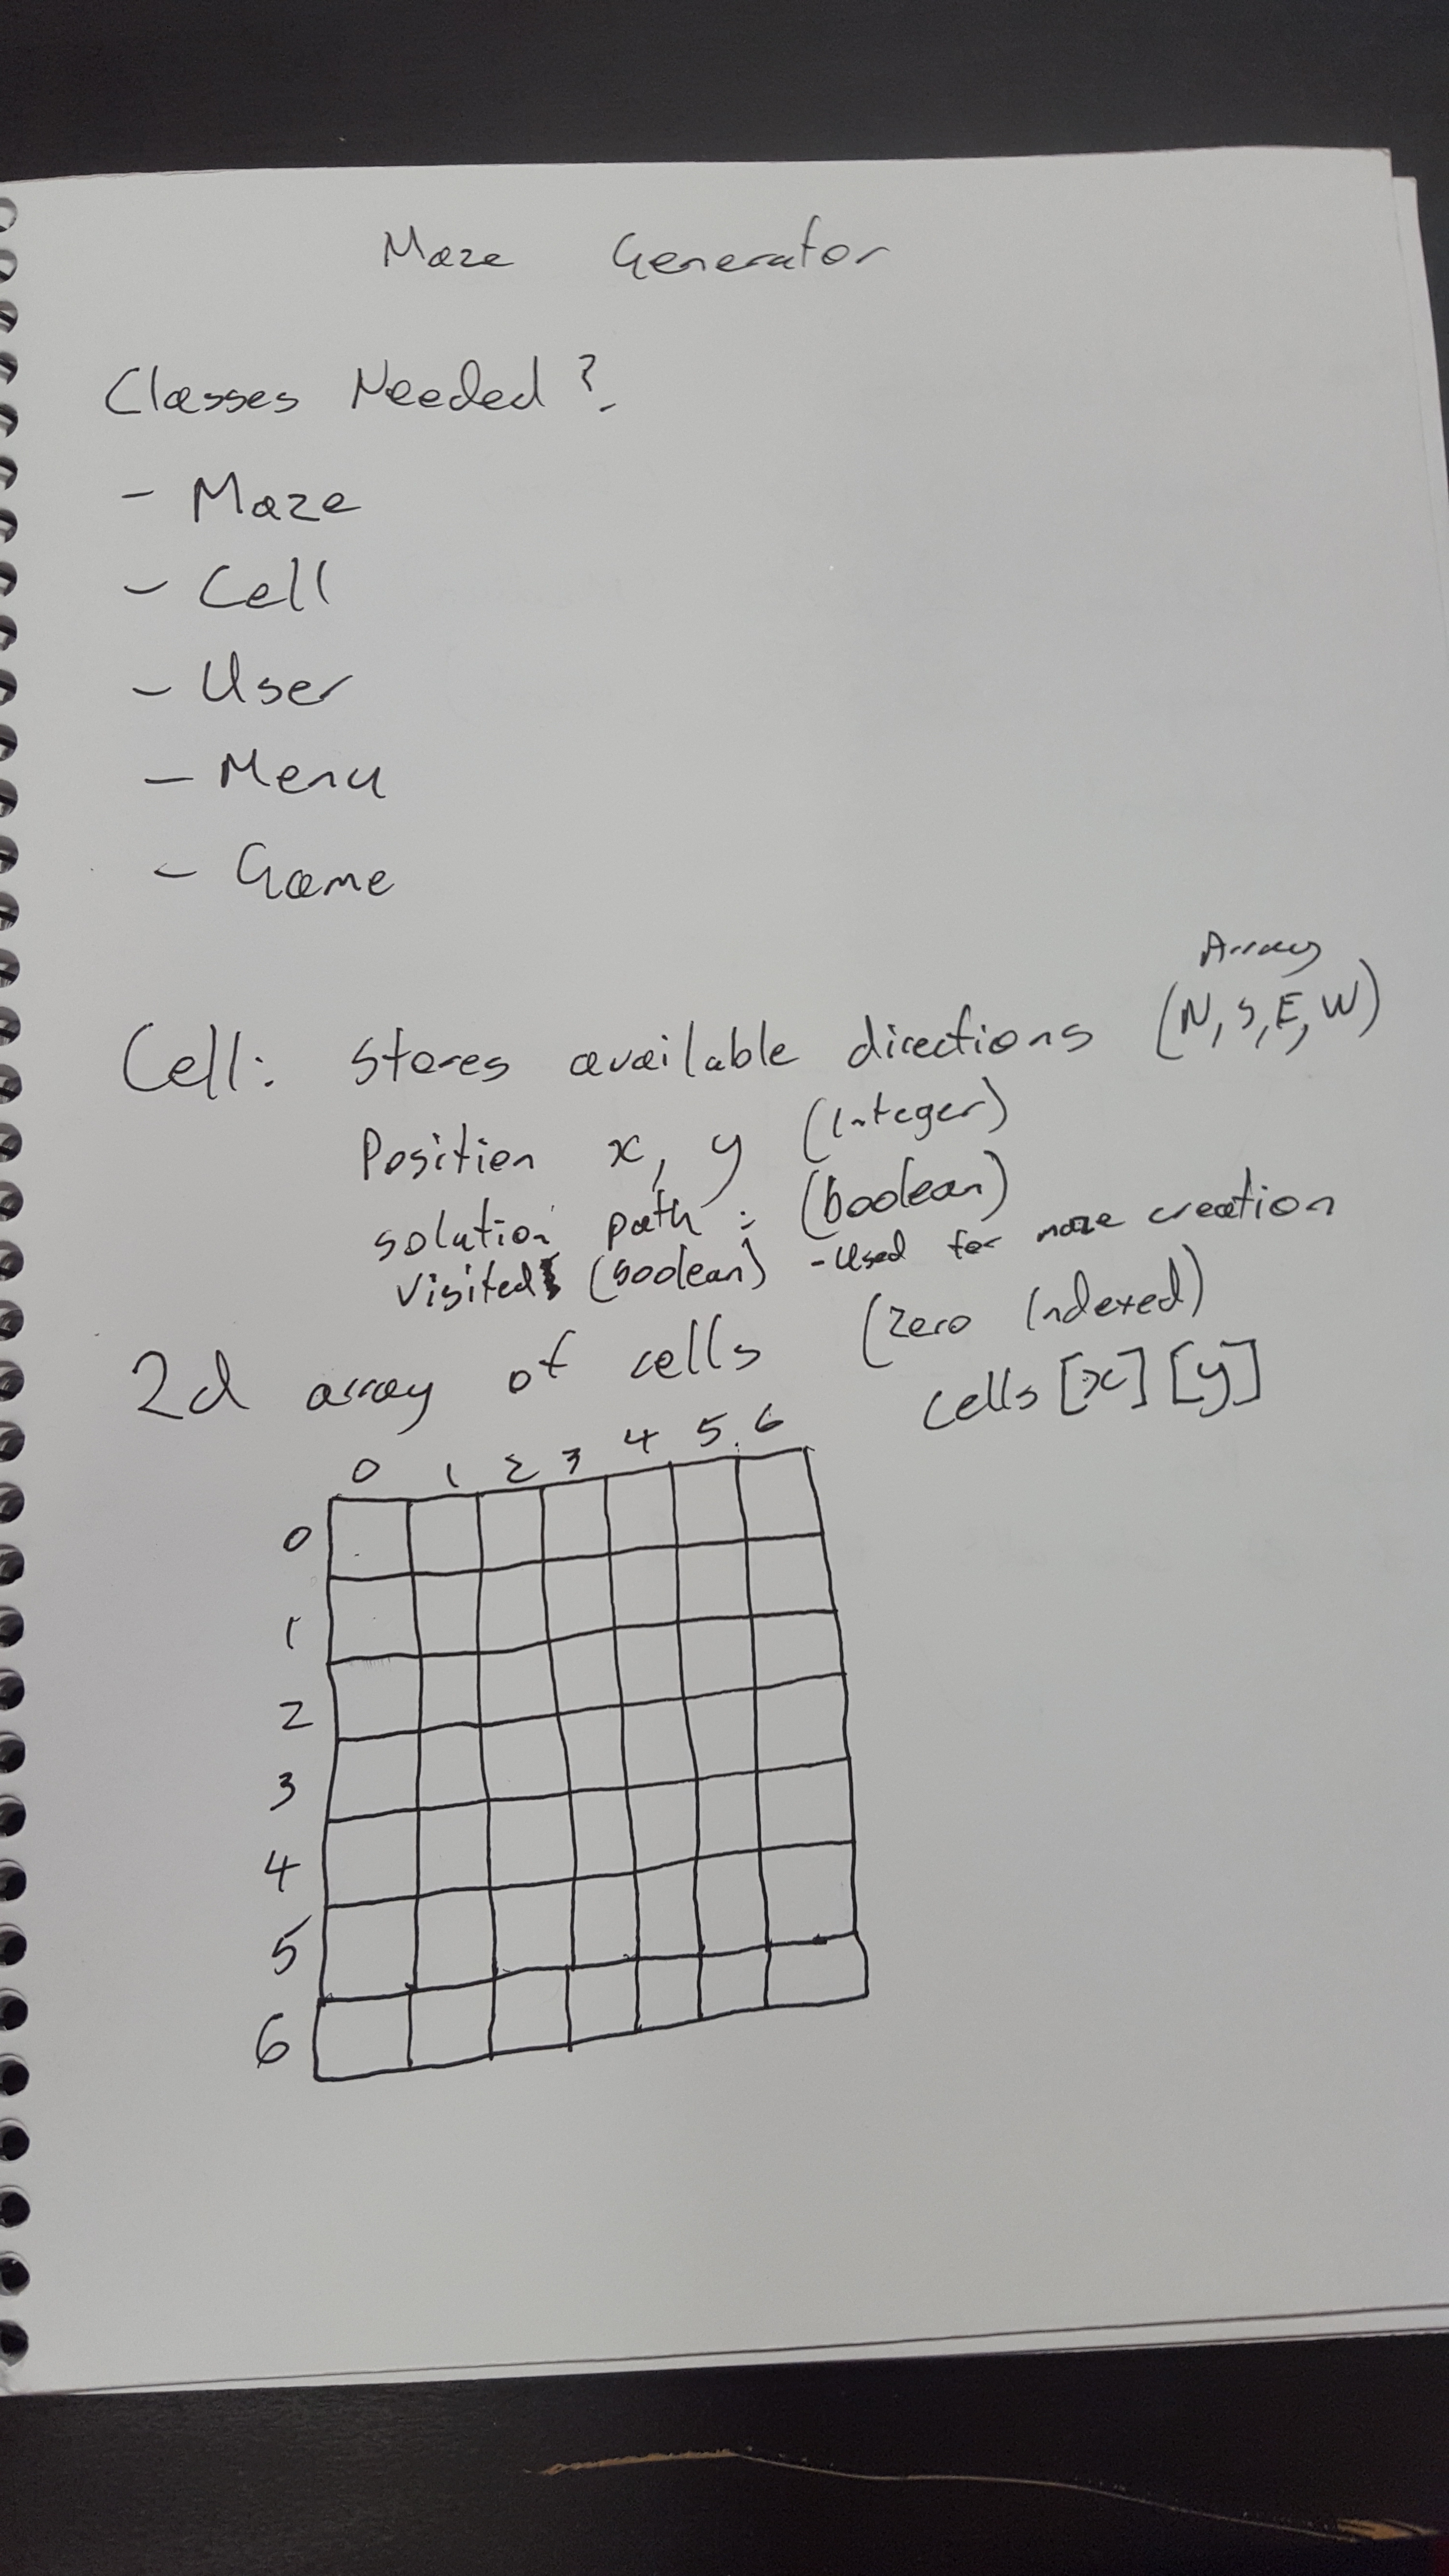 Maze Generator
Classes Needed?
- Maze
- Cell
- User
- Menu
- Game
Array
Cell: Stores available directions (N, S, E, W)
Position x, y (Integer)
solution path : (boolean)
visited (boolean) - Used for maze creation
2d array of cells (Zero Indexed)
cells [x] [y]
0 1 2 3 4 5 6
0
1
2
3
4
5
6